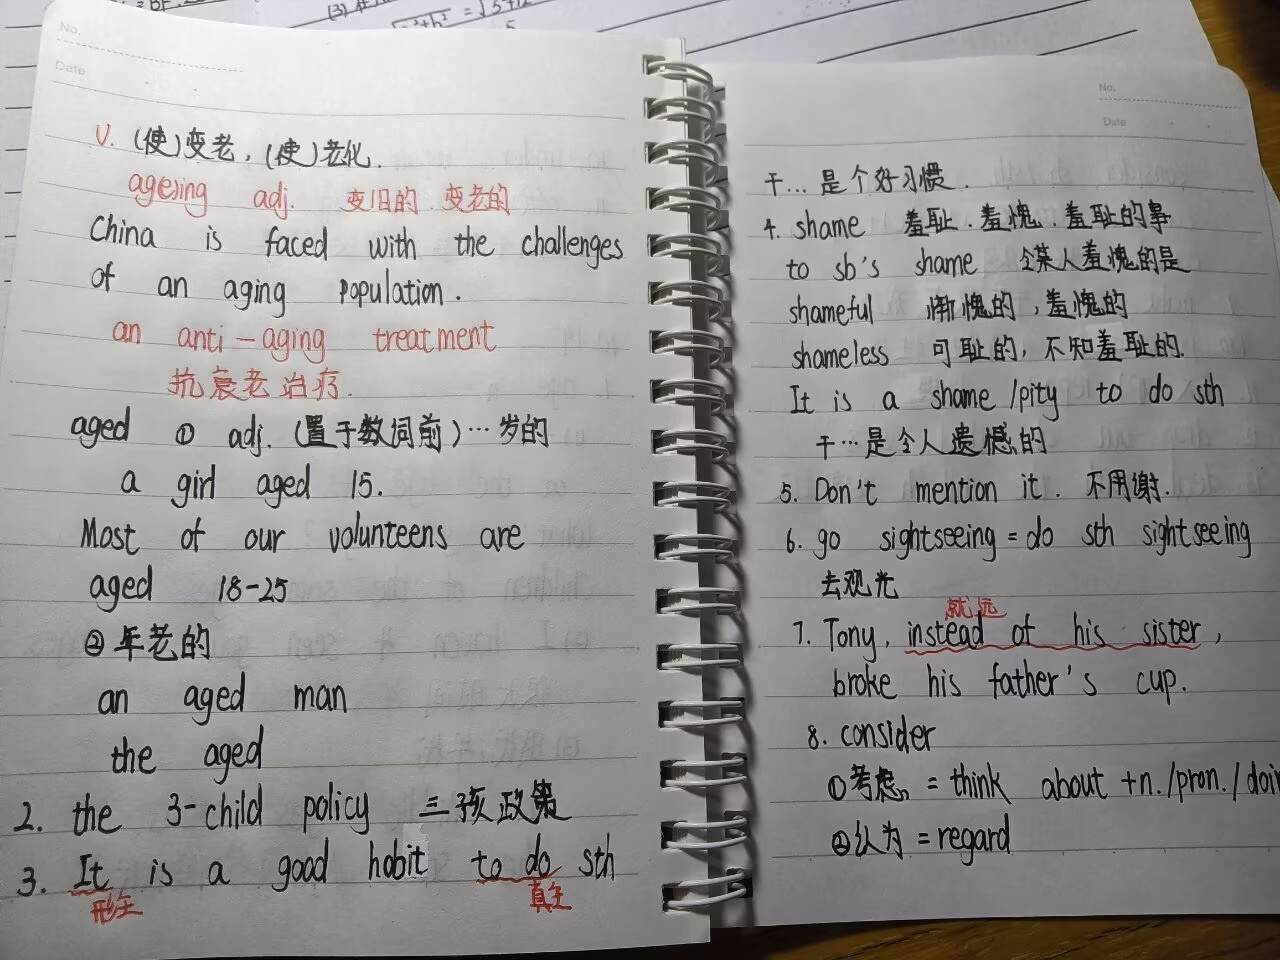 No.
Date
V. (使)变老, (使)老化.
age)ing adj. 变旧的 变老的
China is faced with the challenges
of an aging population.
an anti-aging treatment
抗衰老治疗.
aged ① adj. (置于数词前)…岁的
a girl aged 15.
Most of our volunteens are
aged 18-25
② 年老的
an aged man
the aged
2. the 3-child policy 三孩政策
3. It is a good habit to do sth
形主 真主
No.
Date
干…是个好习惯.
4. shame 羞耻.羞愧.羞耻的事
to sb's shame 令某人羞愧的是
shameful 惭愧的,羞愧的
shameless 可耻的,不知羞耻的.
It is a shame /pity to do sth
干…是令人遗憾的
5. Don't mention it. 不用谢.
6. go sightseeing = do sth sightseeing
去观光
就远
7. Tony, instead of his sister,
broke his father's cup.
8. consider
①考虑 = think about +n./pron./doin
②认为 = regard